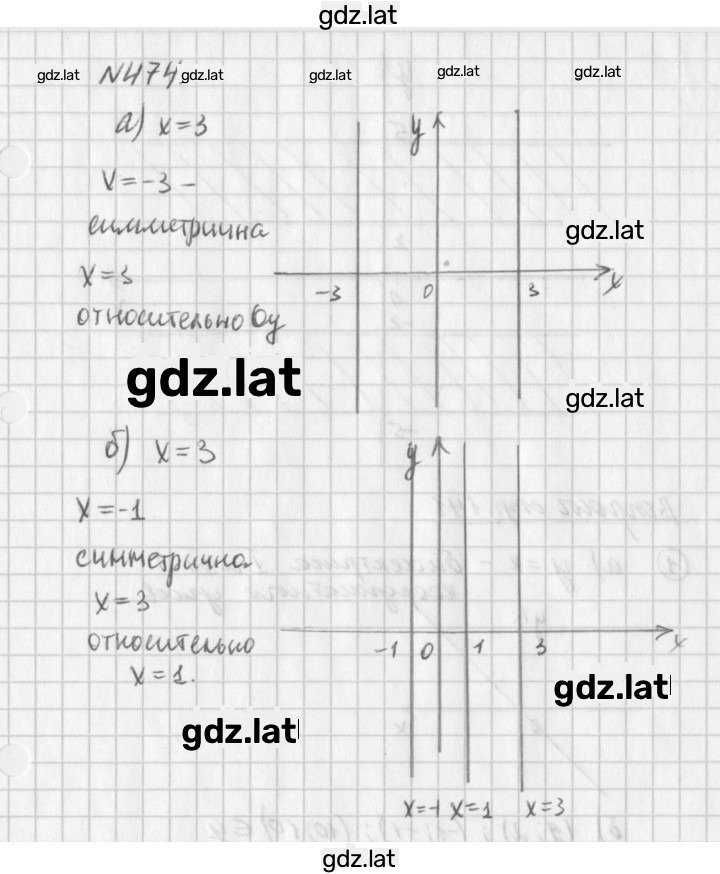 gdz.lat
gdz.lat N474 gdz.lat gdz.lat gdz.lat gdz.lat
а) x=3
y
x=-3 -
симметрична
gdz.lat
x=3
-3 0 3 x
относительно Oy
gdz.lat
gdz.lat
б) x=3
y
x=-1
симметрична
x=3
относительно
-1 0 1 3 x
x=1.
gdz.lat
gdz.lat
x=-1 x=1 x=3
gdz.lat